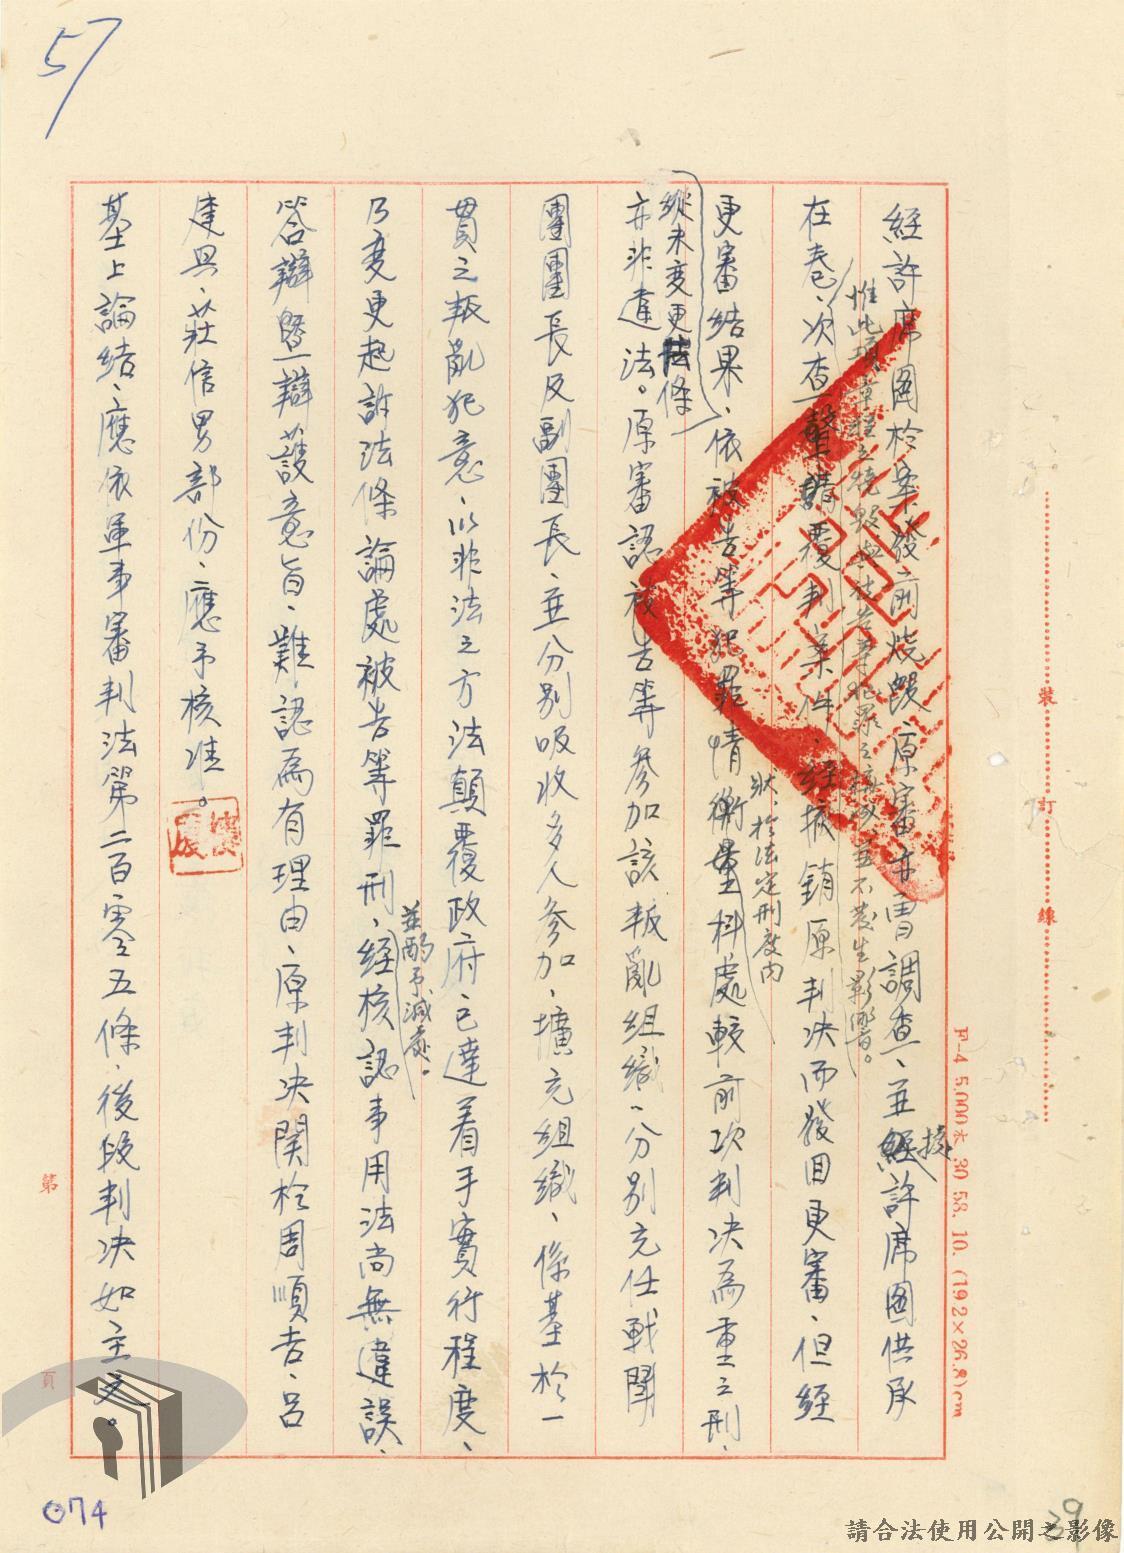 57
經許席圖於案發前燒毀、原審亦曾調查、並據許席圖供承
惟此項章程之燒毀與被告等犯罪之構成、並不發生影響。
在卷、次查聲請覆判案件、經撤銷原判決而發回更審、但經
更審結果、依被告等犯罪情狀、於法定刑度內衡量科處較前次判決為重之刑、
縱未變更法條
亦非違法。原審認被告等參加該叛亂組織、分別充任戰鬥
團團長及副團長、並分別吸收多人參加、擴充組織、係基於一
貫之叛亂犯意、以非法之方法顛覆政府、已達着手實行程度、
乃變更起訴法條論處被告等罪刑、並酌予減處。經核認事用法尚無違誤、
答辯暨辯護意旨、難認為有理由、原判決関於周順吉、呂
建興、莊信男部份、應予核准。
基上論結、應依軍事審判法第二百零五條、後段判決如主文。
裝訂線
第 頁
F-4 5,000本 30 58. 10. (19.2×26.8)cm
074
39
請合法使用公開之影像